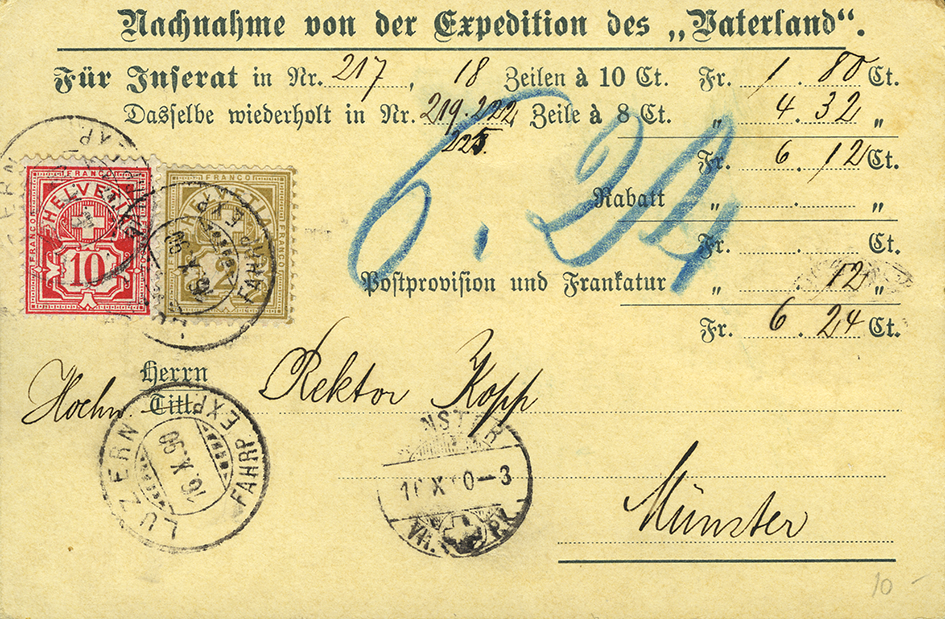 Nachnahme von der Expedition des „Vaterland“.
Für Inserat in Nr. 217, 18 Zeilen à 10 Ct. Fr. 1.80 Ct.
Dasselbe wiederholt in Nr. 219.222 Zeile à 8 Ct. „ 4.32 „
225.
Fr. 6.12 Ct.
Rabatt „ . „
Fr. . Ct.
Postprovision und Frankatur „ 12 „
Fr. 6.24 Ct.
6.24
FRANCO
HELVETIA
FRANCO
FRANCO
10
FRANCO
FRANCO
FRANCO
2
LUZERN
FAHRP. EXP.
Herrn
Hochw. Titl. Rektor Kopp
Münster
LUZERN
16.X.90
FAHRP EXP
NSTER
X 0-3
10-